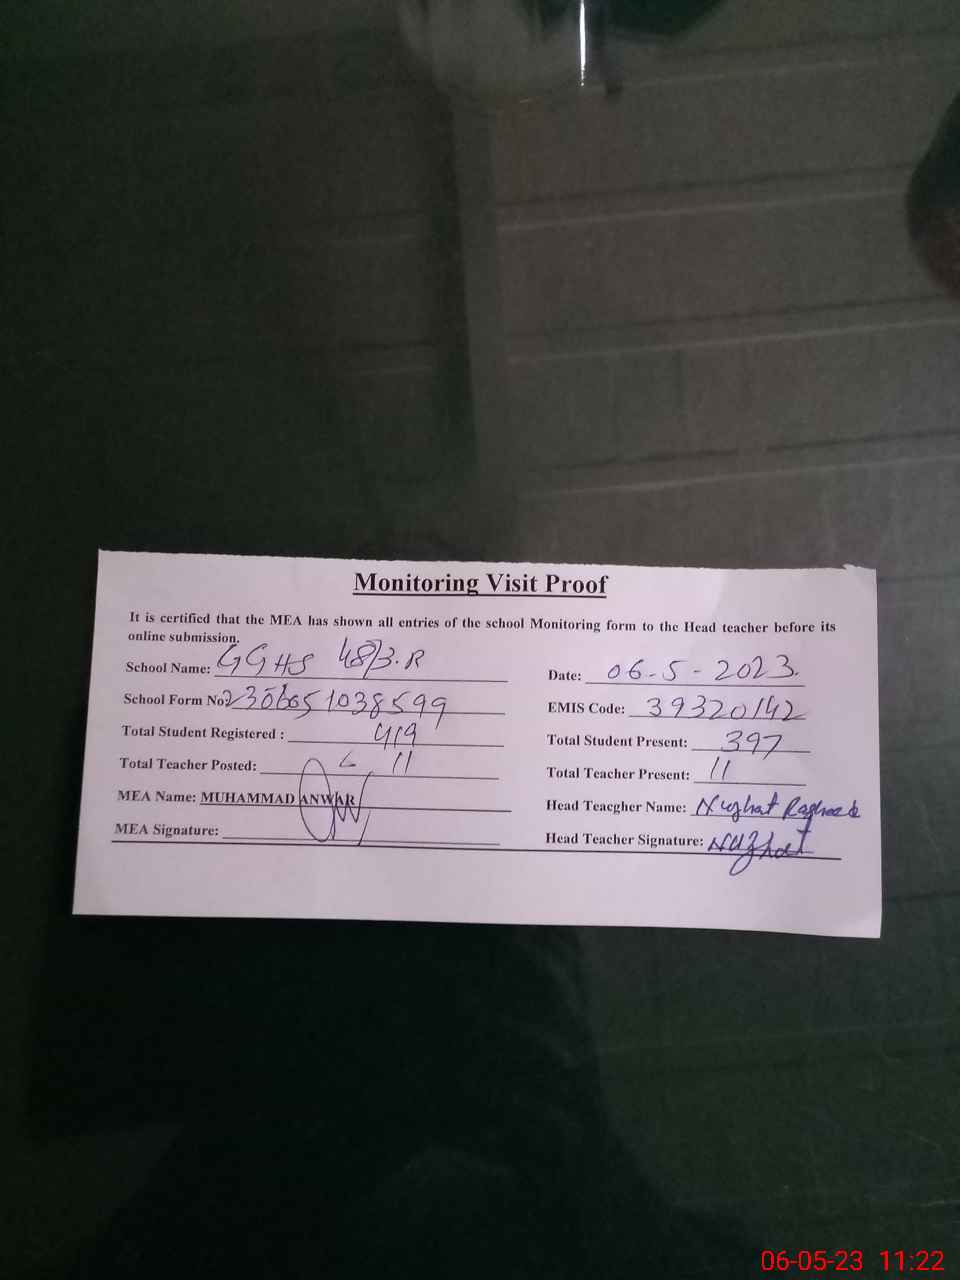 Monitoring Visit Proof
It is certified that the MEA has shown all entries of the school Monitoring form to the Head teacher before its
online submission.
School Name: GGHS 48/3.R
Date: 06-5-2023.
School Form No:
EMIS Code: 39320142
Total Student Registered : 419
Total Student Present: 397
Total Teacher Posted: 11
Total Teacher Present: 11
MEA Name: MUHAMMAD ANWAR
Head Teacgher Name: Nuzhat
MEA Signature:
Head Teacher Signature: Nuzhat
06-05-23 11:22